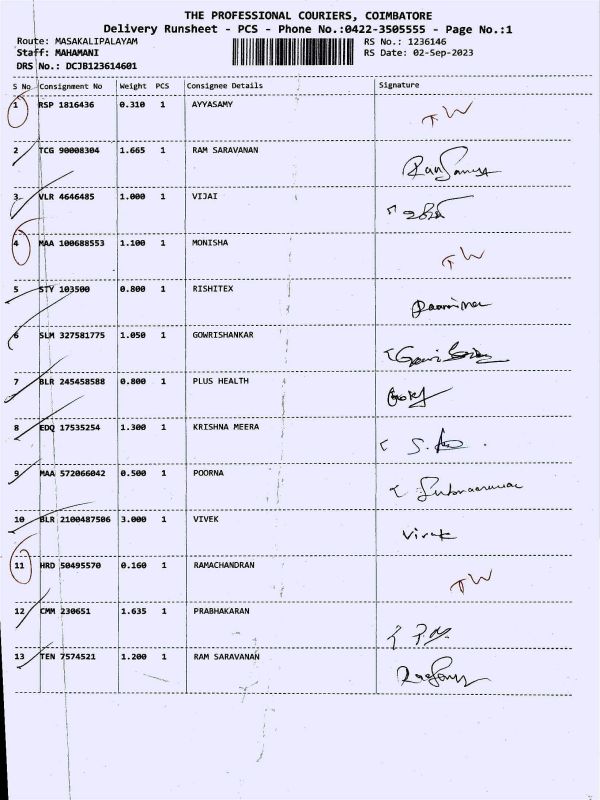 THE PROFESSIONAL COURIERS, COIMBATORE
Delivery Runsheet - PCS - Phone No.:0422-3505555 - Page No.:1
Route: MASAKALIPALAYAM RS No.: 1236146
Staff: MAHAMANI RS Date: 02-Sep-2023
DRS No.: DCJB123614601
S No Consignment No Weight PCS Consignee Details Signature
1 RSP 1816436 0.310 1 AYYASAMY
2 TCG 90008304 1.665 1 RAM SARAVANAN
3 VLR 4646485 1.000 1 VIJAI
4 MAA 100688553 1.100 1 MONISHA
5 STY 103500 0.800 1 RISHITEX
6 SLM 327581775 1.050 1 GOWRISHANKAR
7 BLR 245458588 0.800 1 PLUS HEALTH
8 EDQ 17535254 1.300 1 KRISHNA MEERA
9 MAA 572066042 0.500 1 POORNA
10 BLR 2100487506 3.000 1 VIVEK Vivek
11 HRD 50495570 0.160 1 RAMACHANDRAN
12 CMM 230651 1.635 1 PRABHAKARAN
13 TEN 7574521 1.200 1 RAM SARAVANAN